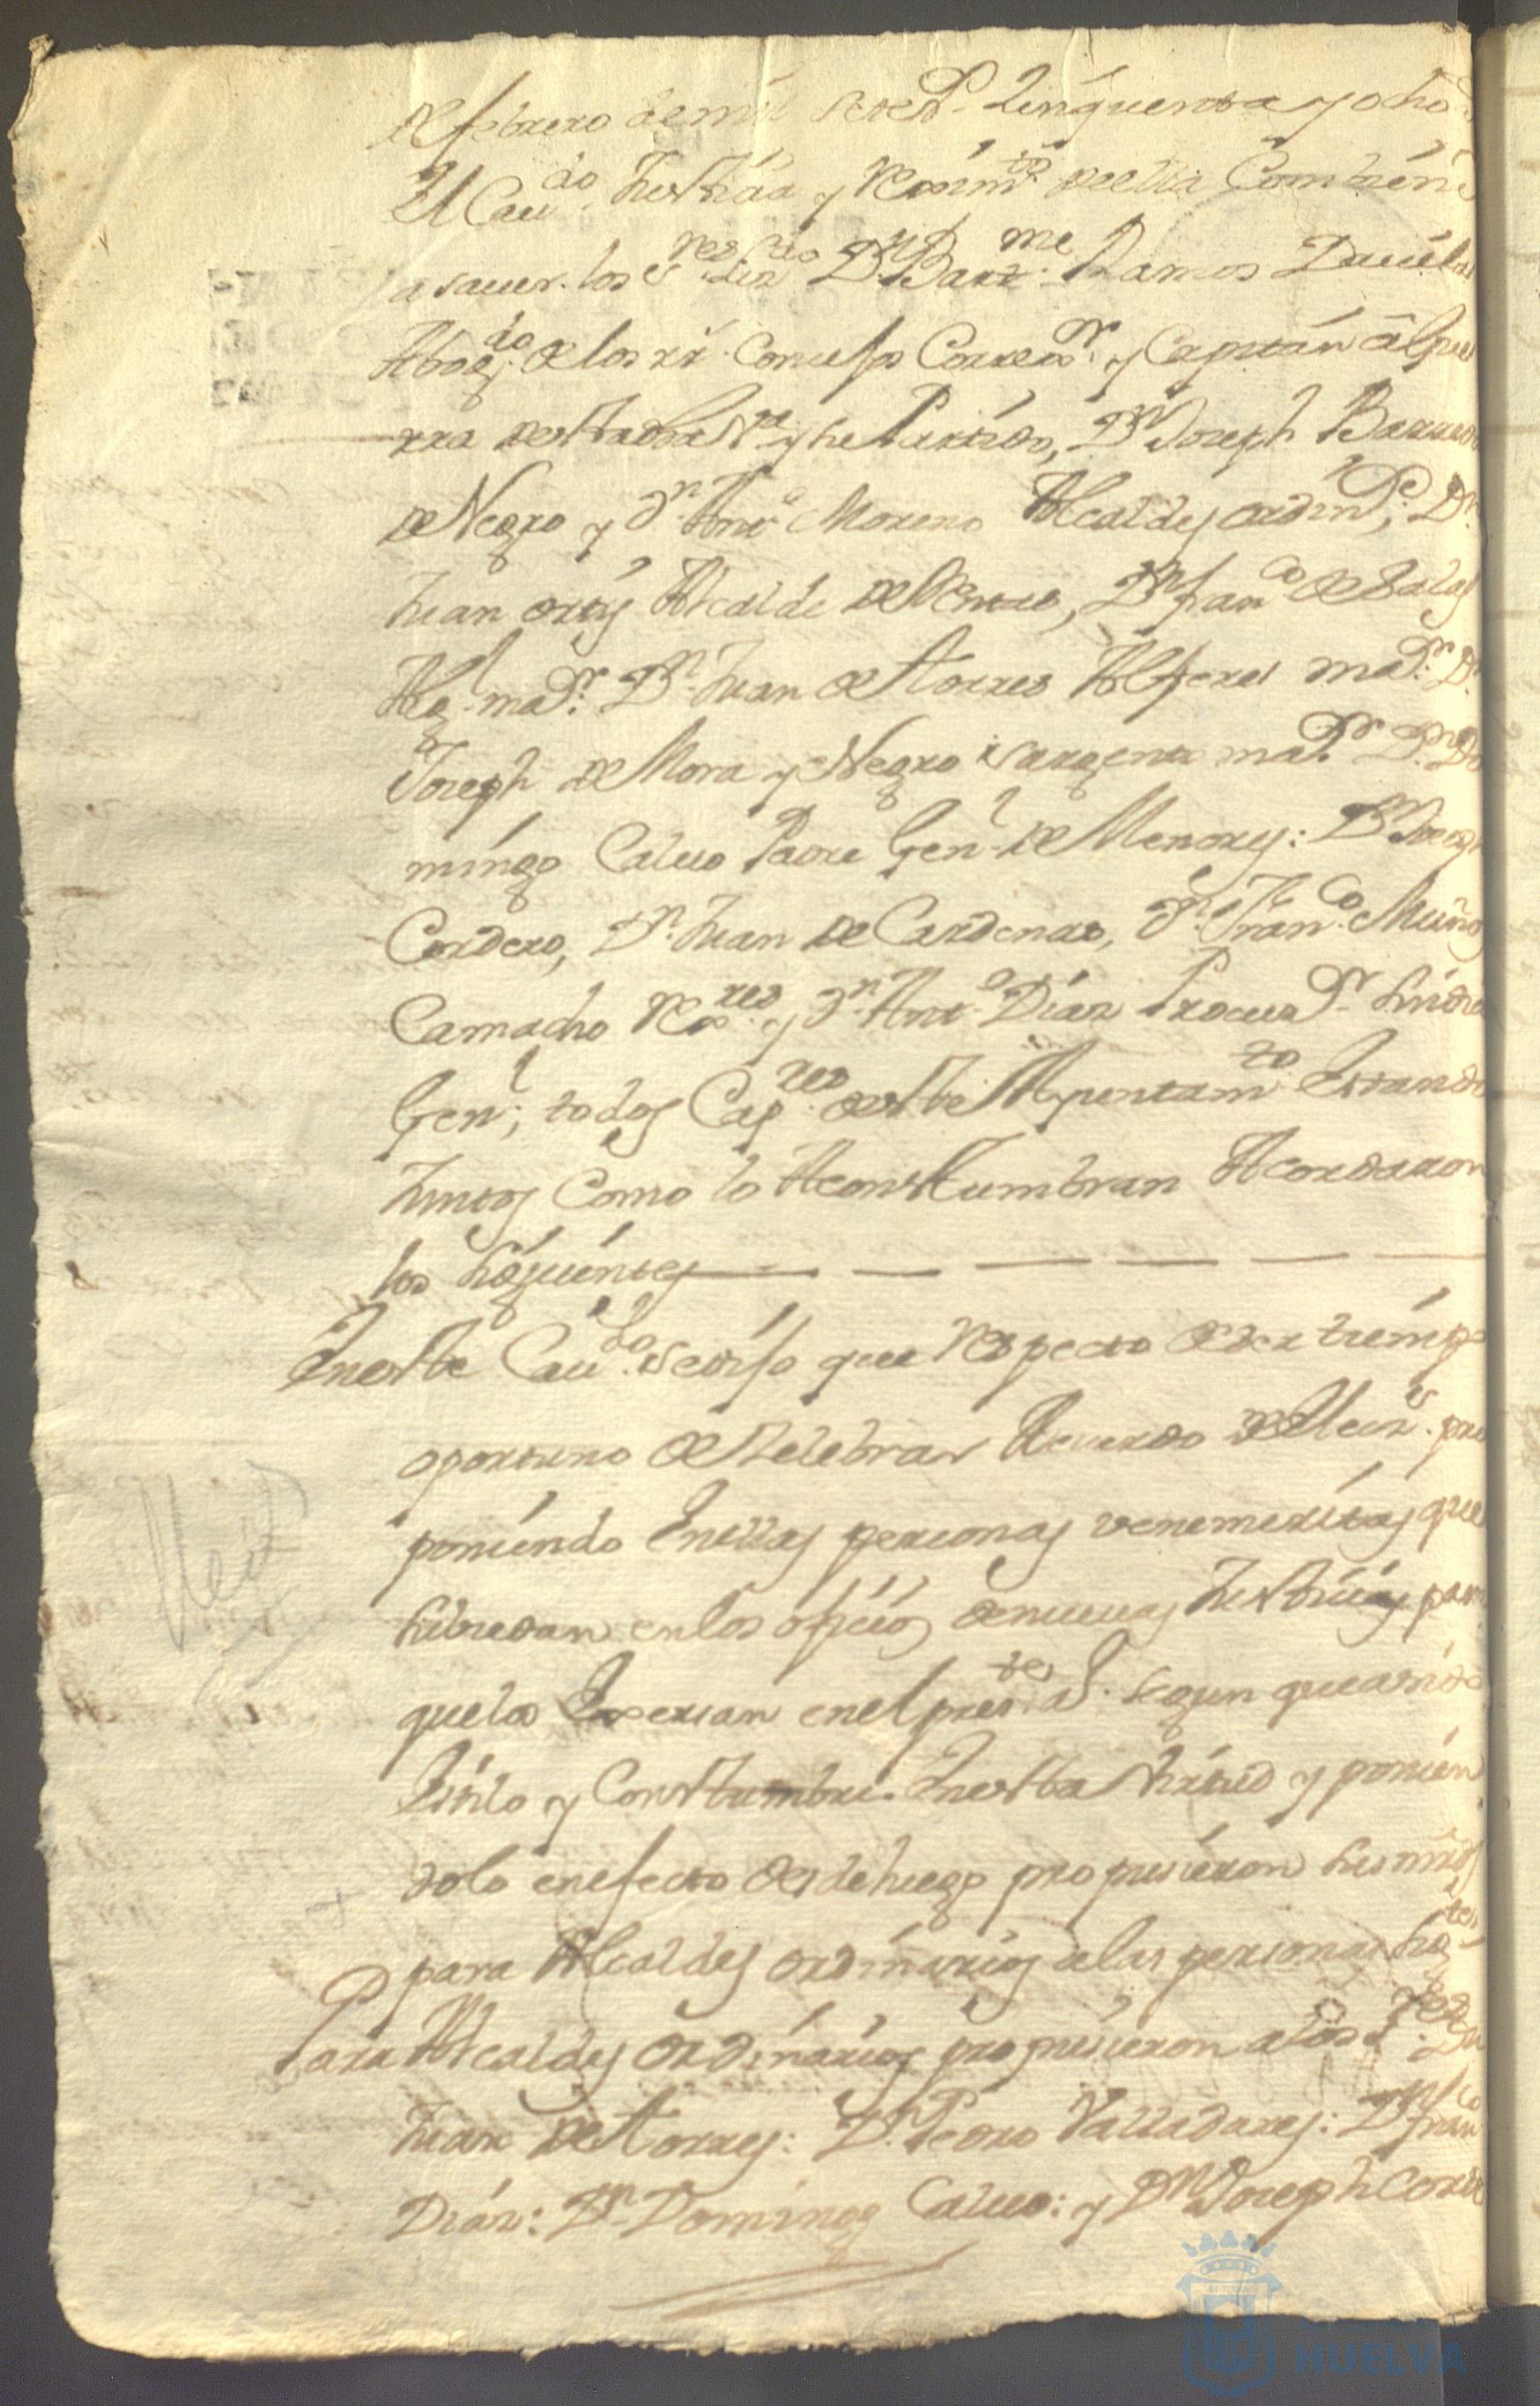 de febrero de mil setesᵗ. Zinquenta y ocho
El Cauᵈᵒ. Justizia y Reximᵗᵒ. de ella Combiene
a sauer. los Sʳᵉˢ. Lizᵈᵒ Dⁿ. Bartᵐᵉ. Ramos Dauila
Abogᵈᵒ. de los rˢ. Consejos Correxᵒʳ. y Capitán á Gue
rra de esta dha Vᵃ y su Partido, Dⁿ Joseph Barreda
de Negro y Dⁿ. Antᵒ. Moreno Alcaldes ordinˢ; Dⁿ.
Juan ortiz Alcalde de Mentas, Dⁿ franᶜᵒ de Salas
Alg. maᵒʳ. Dⁿ. Juan de Torres Alferez maᵒʳ. Dⁿ.
Joseph de Mora y Negro sargento maᵒʳ. Dⁿ. Do
mingo Caluo Padre Genˡ. de Menores: Dⁿ Joseph
Cordero, Dⁿ. Juan de Cardenas, Dⁿ. Franᶜᵒ. Muños
Camacho Rexʳᵉˢ. y Dⁿ. Antᵒ. Dias Procuraᵒʳ. sindico
Genˡ; todos Capʳᵉˢ. de este Ayuntamᵗᵒ Estando
Juntos como lo Acostumbran Acordaron
los siguientes
En este Cauᵈᵒ. se dijo que Respecto de ser tiempo
oportuno de Zelebrar Acuerdo de Elecⁿˢ. pro
poniendo En ellas personas venemeritas que
subzedan en los oficios de nuevas Justicias para
que los Exersan en el presᵗᵉ a. segun que a sido
Estilo y Costumbre. En esta virtud y ponien
dolo en efecto desde luego propusieron sus mrds
para Alcaldes ordinarios a las personas sigᵗᵉˢ
Para Alcaldes ordinarios propusieron a los Sʳᵉˢ. Dⁿ
Juan de Torres: Dⁿ. Pedro Valladares: Dⁿ franᶜᵒ
Dias: Dⁿ. Domingo Caluo: y Dⁿ Joseph Corde
HUELVA